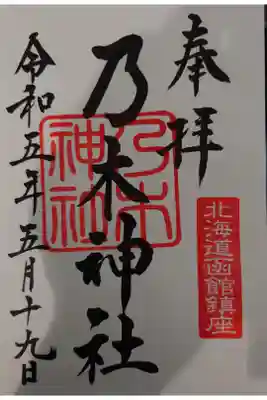 奉拝
北海道函館鎮座
乃木神社
乃木神社
令和五年五月十九日